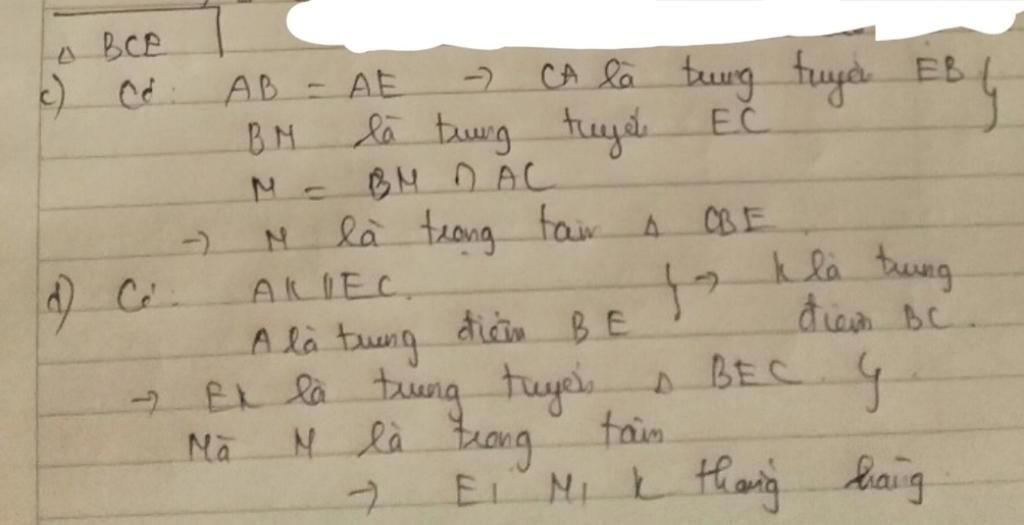 Δ BCE
c) Có: AB = AE → CA là trung tuyến EB }
BM là trung tuyến EC
M = BM ∩ AC
→ M là trọng tâm Δ CBE
d) Có: AK // EC. } → K là trung
A là trung điểm BE điểm BC.
→ EK là trung tuyến Δ BEC. }
Mà M là trọng tâm
→ E, M, K thẳng hàng